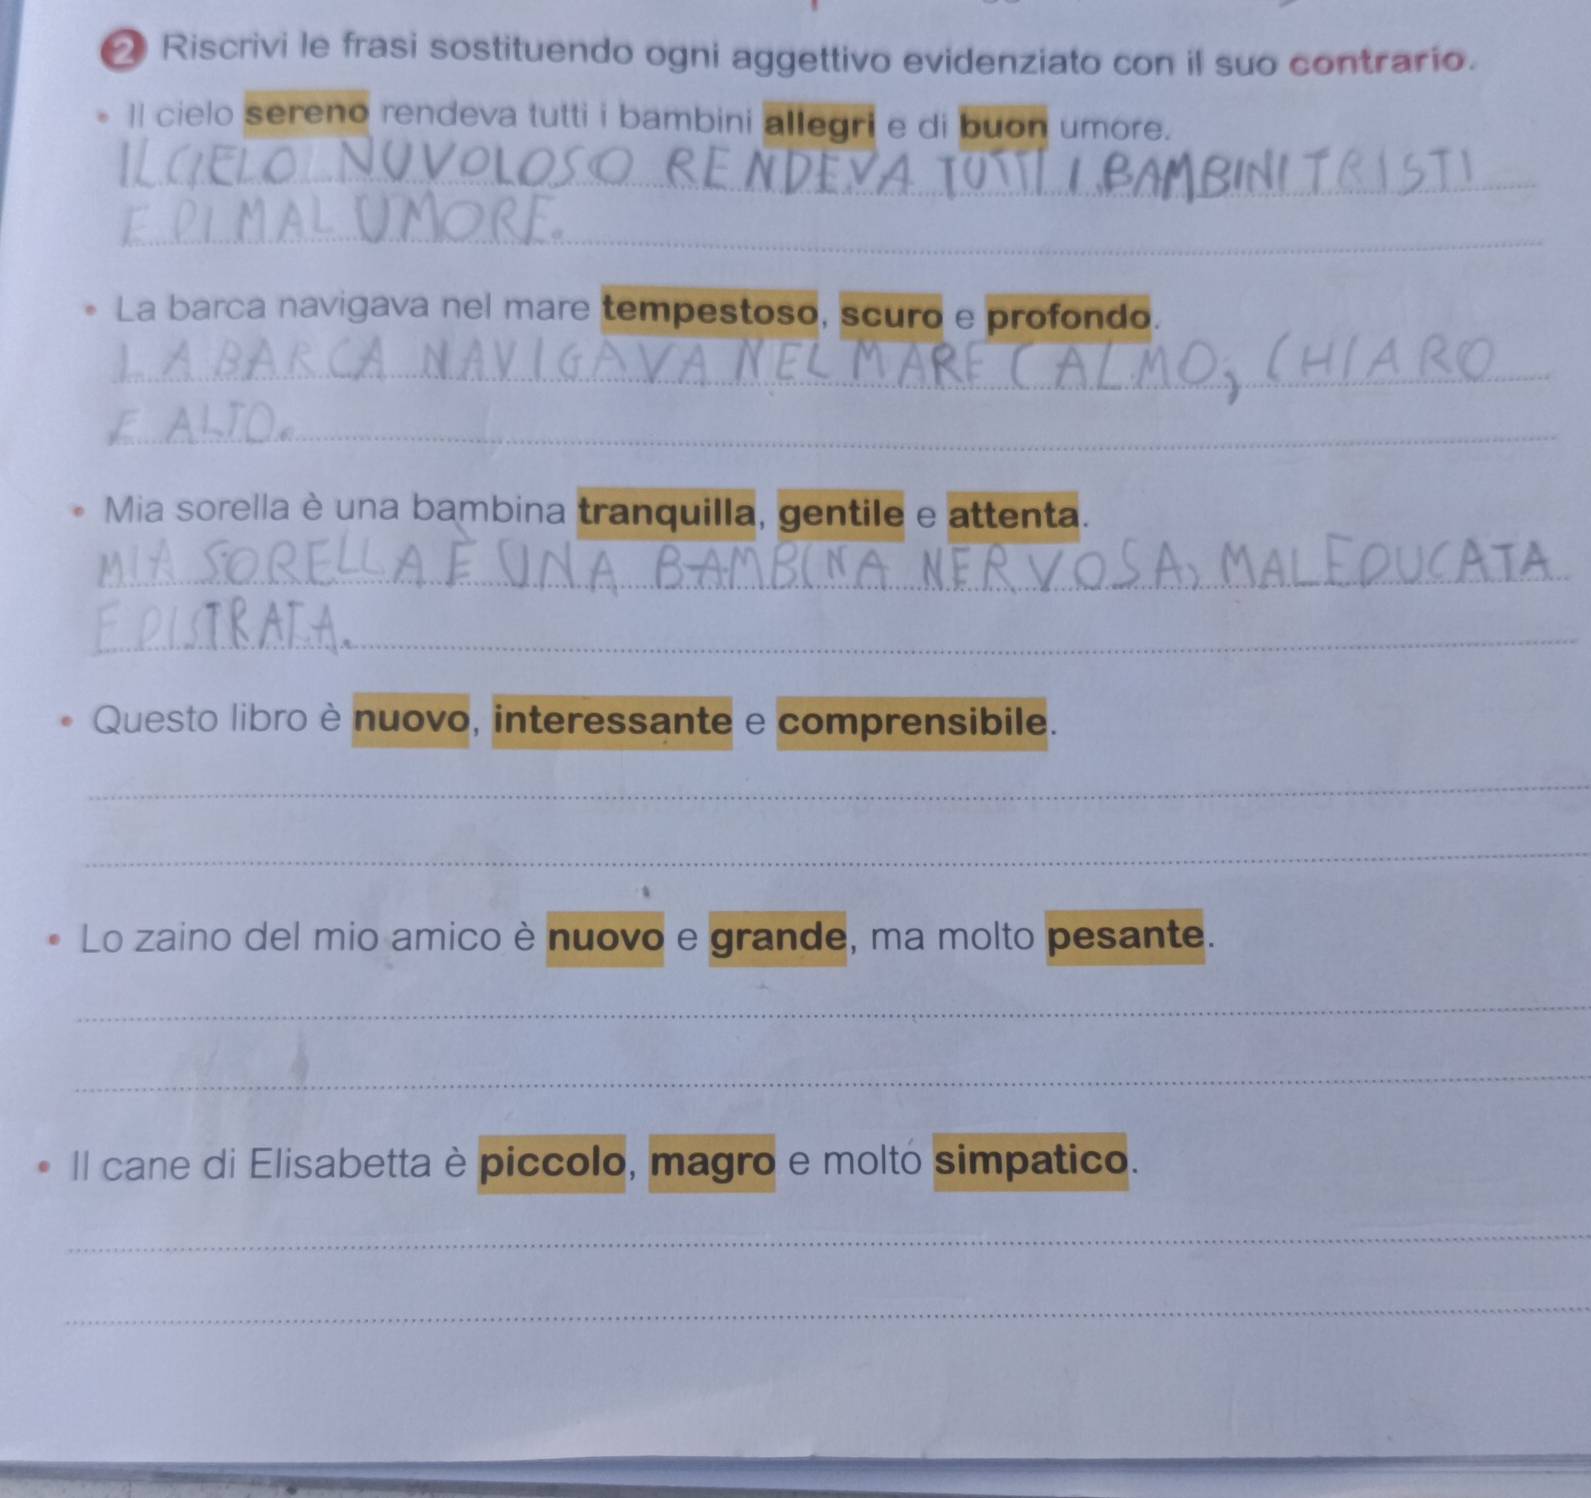 2 Riscrivi le frasi sostituendo ogni aggettivo evidenziato con il suo contrario.
• Il cielo sereno rendeva tutti i bambini allegri e di buon umore.
IL CIELO NUVOLOSO RENDEVA TUTTI I BAMBINI TRISTI
E DI MAL UMORE.
• La barca navigava nel mare tempestoso, scuro e profondo.
LA BARCA NAVIGAVA NEL MARE CALMO, CHIARO
E ALTO.
• Mia sorella è una bambina tranquilla, gentile e attenta.
MIA SORELLA È UNA BAMBINA NERVOSA, MALEDUCATA
E DISTRATA.
• Questo libro è nuovo, interessante e comprensibile.
• Lo zaino del mio amico è nuovo e grande, ma molto pesante.
• Il cane di Elisabetta è piccolo, magro e molto simpatico.